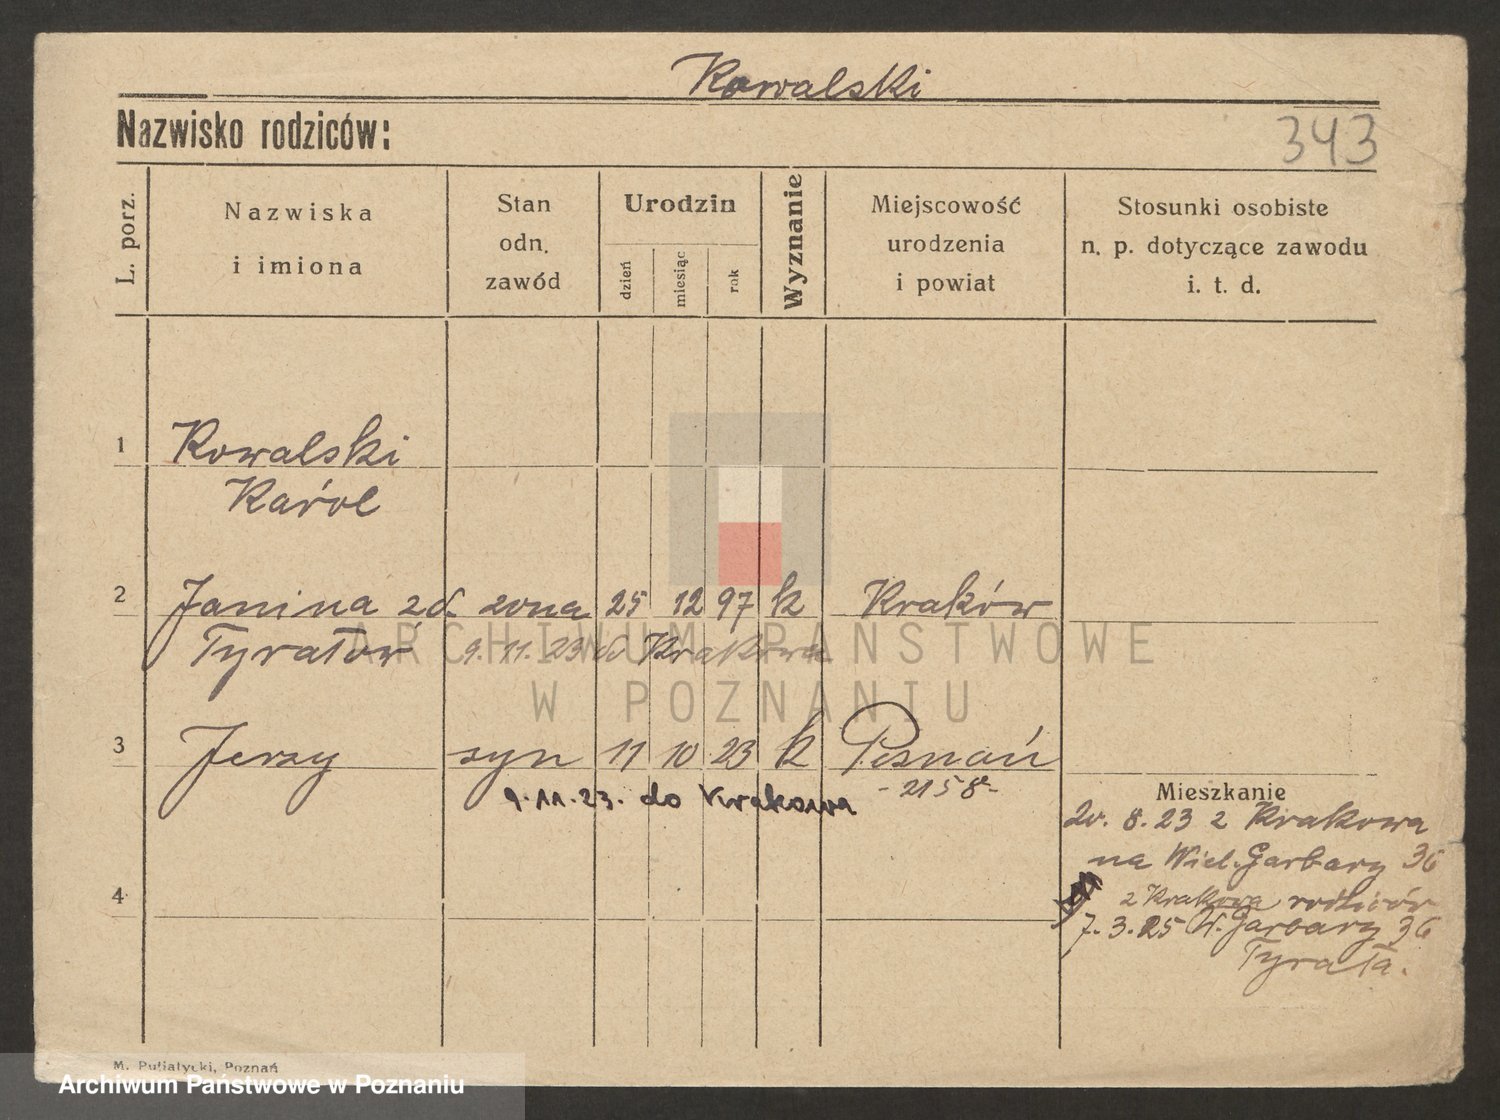 Kowalski
Nazwisko rodziców:
343
L. porz.
Nazwiska
i imiona
Stan
odn.
zawód
Urodzin
dzień
miesiąc
rok
Wyznanie
Miejscowość
urodzenia
i powiat
Stosunki osobiste
n. p. dotyczące zawodu
i. t. d.
1
Kowalski
Karol
2 Janina zd. żona 25 12 97 k Kraków
Tyrałów 9.11.23 do Krakowa
ARCHIWUM PAŃSTWOWE
W POZNANIU
3 Jerzy syn 11 10 23 k Poznań
9.11.23. do Krakowa - 2158 -
Mieszkanie
20. 8. 23 z Krakowa
na Wiel. Garbary 36
4
z Krakowa rodziców
7. 3. 25 W. Garbary 36
Tyrała.
M. Putiatycki, Poznań
Archiwum Państwowe w Poznaniu